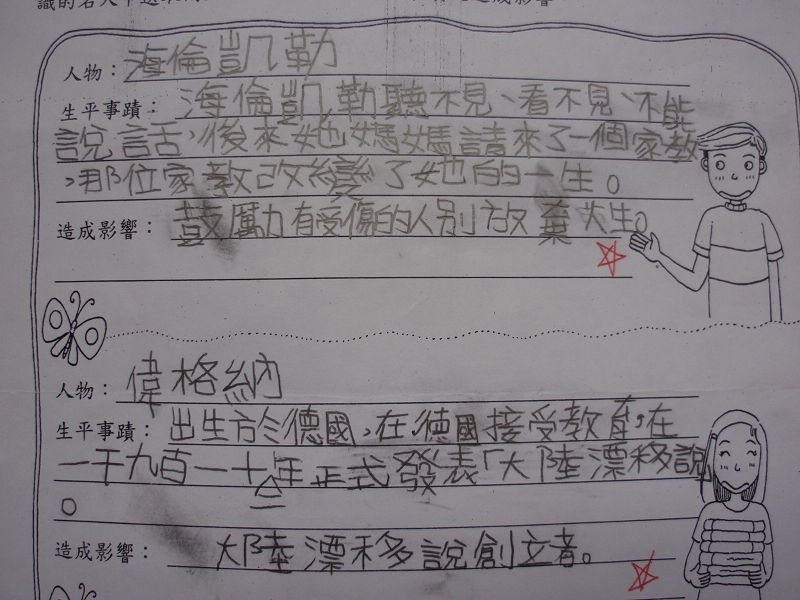 人物：海倫凱勒
生平事蹟：海倫凱勒聽不見、看不見、不能
說話，後來她媽媽請來了一個家教
，那位家教改變了她的一生。
造成影響：鼓厲力有受傷的人別放棄人生。
人物：偉格納
生平事蹟：出生於德國，在德國接受教育，在
一千九百一十二年正式發表「大陸漂移說
。
造成影響：大陸漂移說創立者。